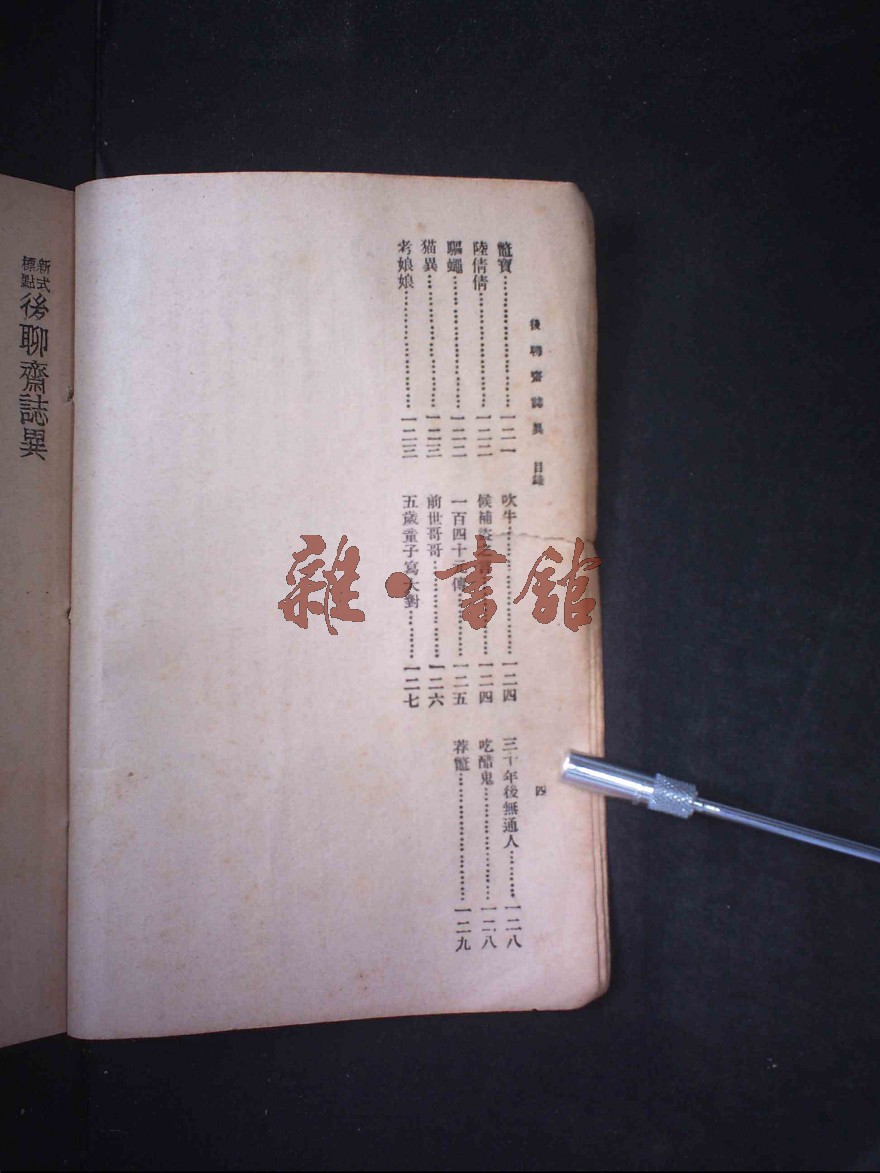 後聊齋誌異 目錄 四
鼈寶……一二一
陸倩倩……一二二
驅蠅……一二二
猫異……一二三
考娘娘……一二三
吹牛……一二四
候補盜之……一二四
一百四十……傳……一二五
前世哥哥……一二六
五歲童子寫大對……一二七
三十年後無通人……一二八
吃醋鬼……一二八
蓉鼈……一二九
新式標點 後聊齋誌異
雜·書舘